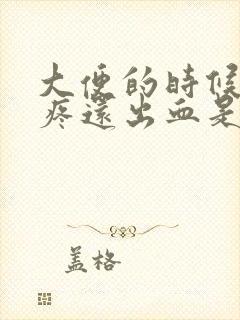 大便的時候
疼還出血是
盖格